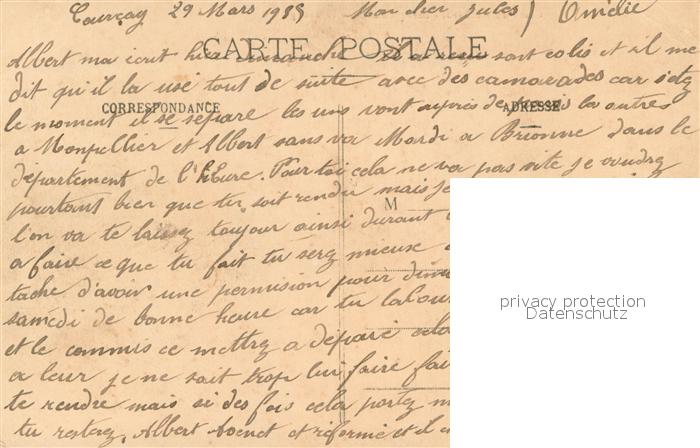 Courçay 29 Mars 1915 Mon cher Jules / Omélie
Albert ma ecrit hier dimanche il a reçu sont colis et il me
CARTE POSTALE
dit qu'il la usé tout de suite avec des camarades car s'etez
CORRESPONDANCE ADRESSE
le moment il se separe les uns vont auprès de la autres
a Monpellier et Albert sans va Mardi a Brionne dans le
département de l'hEure. Pour toi cela ne va pas vite je voudrez
pourtant bien que tu soit rendu mais je
M
l'on va te laissez toujour ainsi durant
a faire ce que tu fait tu serez mieux
tache d'avoir une permission pour dim
samedi de bonne heure car tu
et le commis ce mettrez a
a leur je ne sait trop lui faire fai
te rendre mais si des fois cela portez m
tu resterez. Albert et réformé et il
privacy protection
Datenschutz